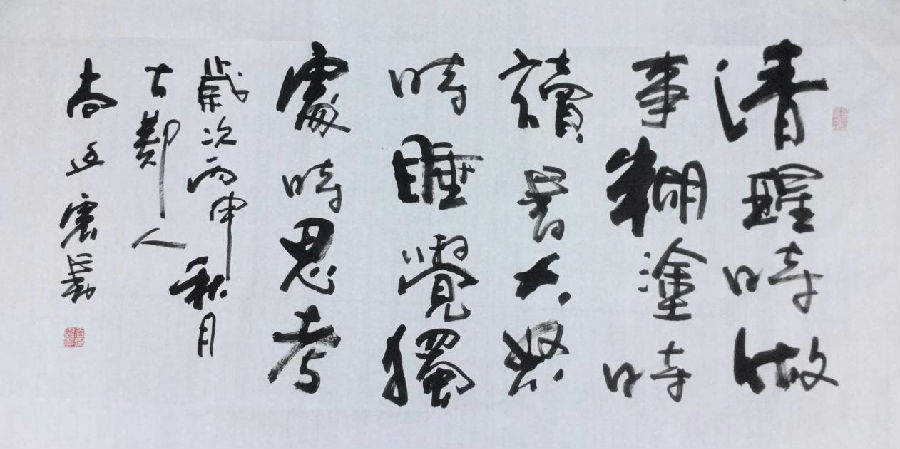 清醒時做
事糊塗時
讀書大怒
時睡覺獨
處時思考
歲次丙申秋月
古鄭人
尚